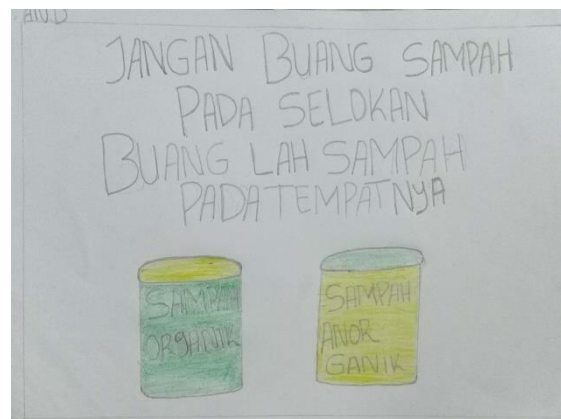 JANGAN BUANG SAMPAH
PADA SELOKAN
BUANG LAH SAMPAH
PADA TEMPATNYA
SAMPAH
ORGANIK
SAMPAH
ANOR
GANIK